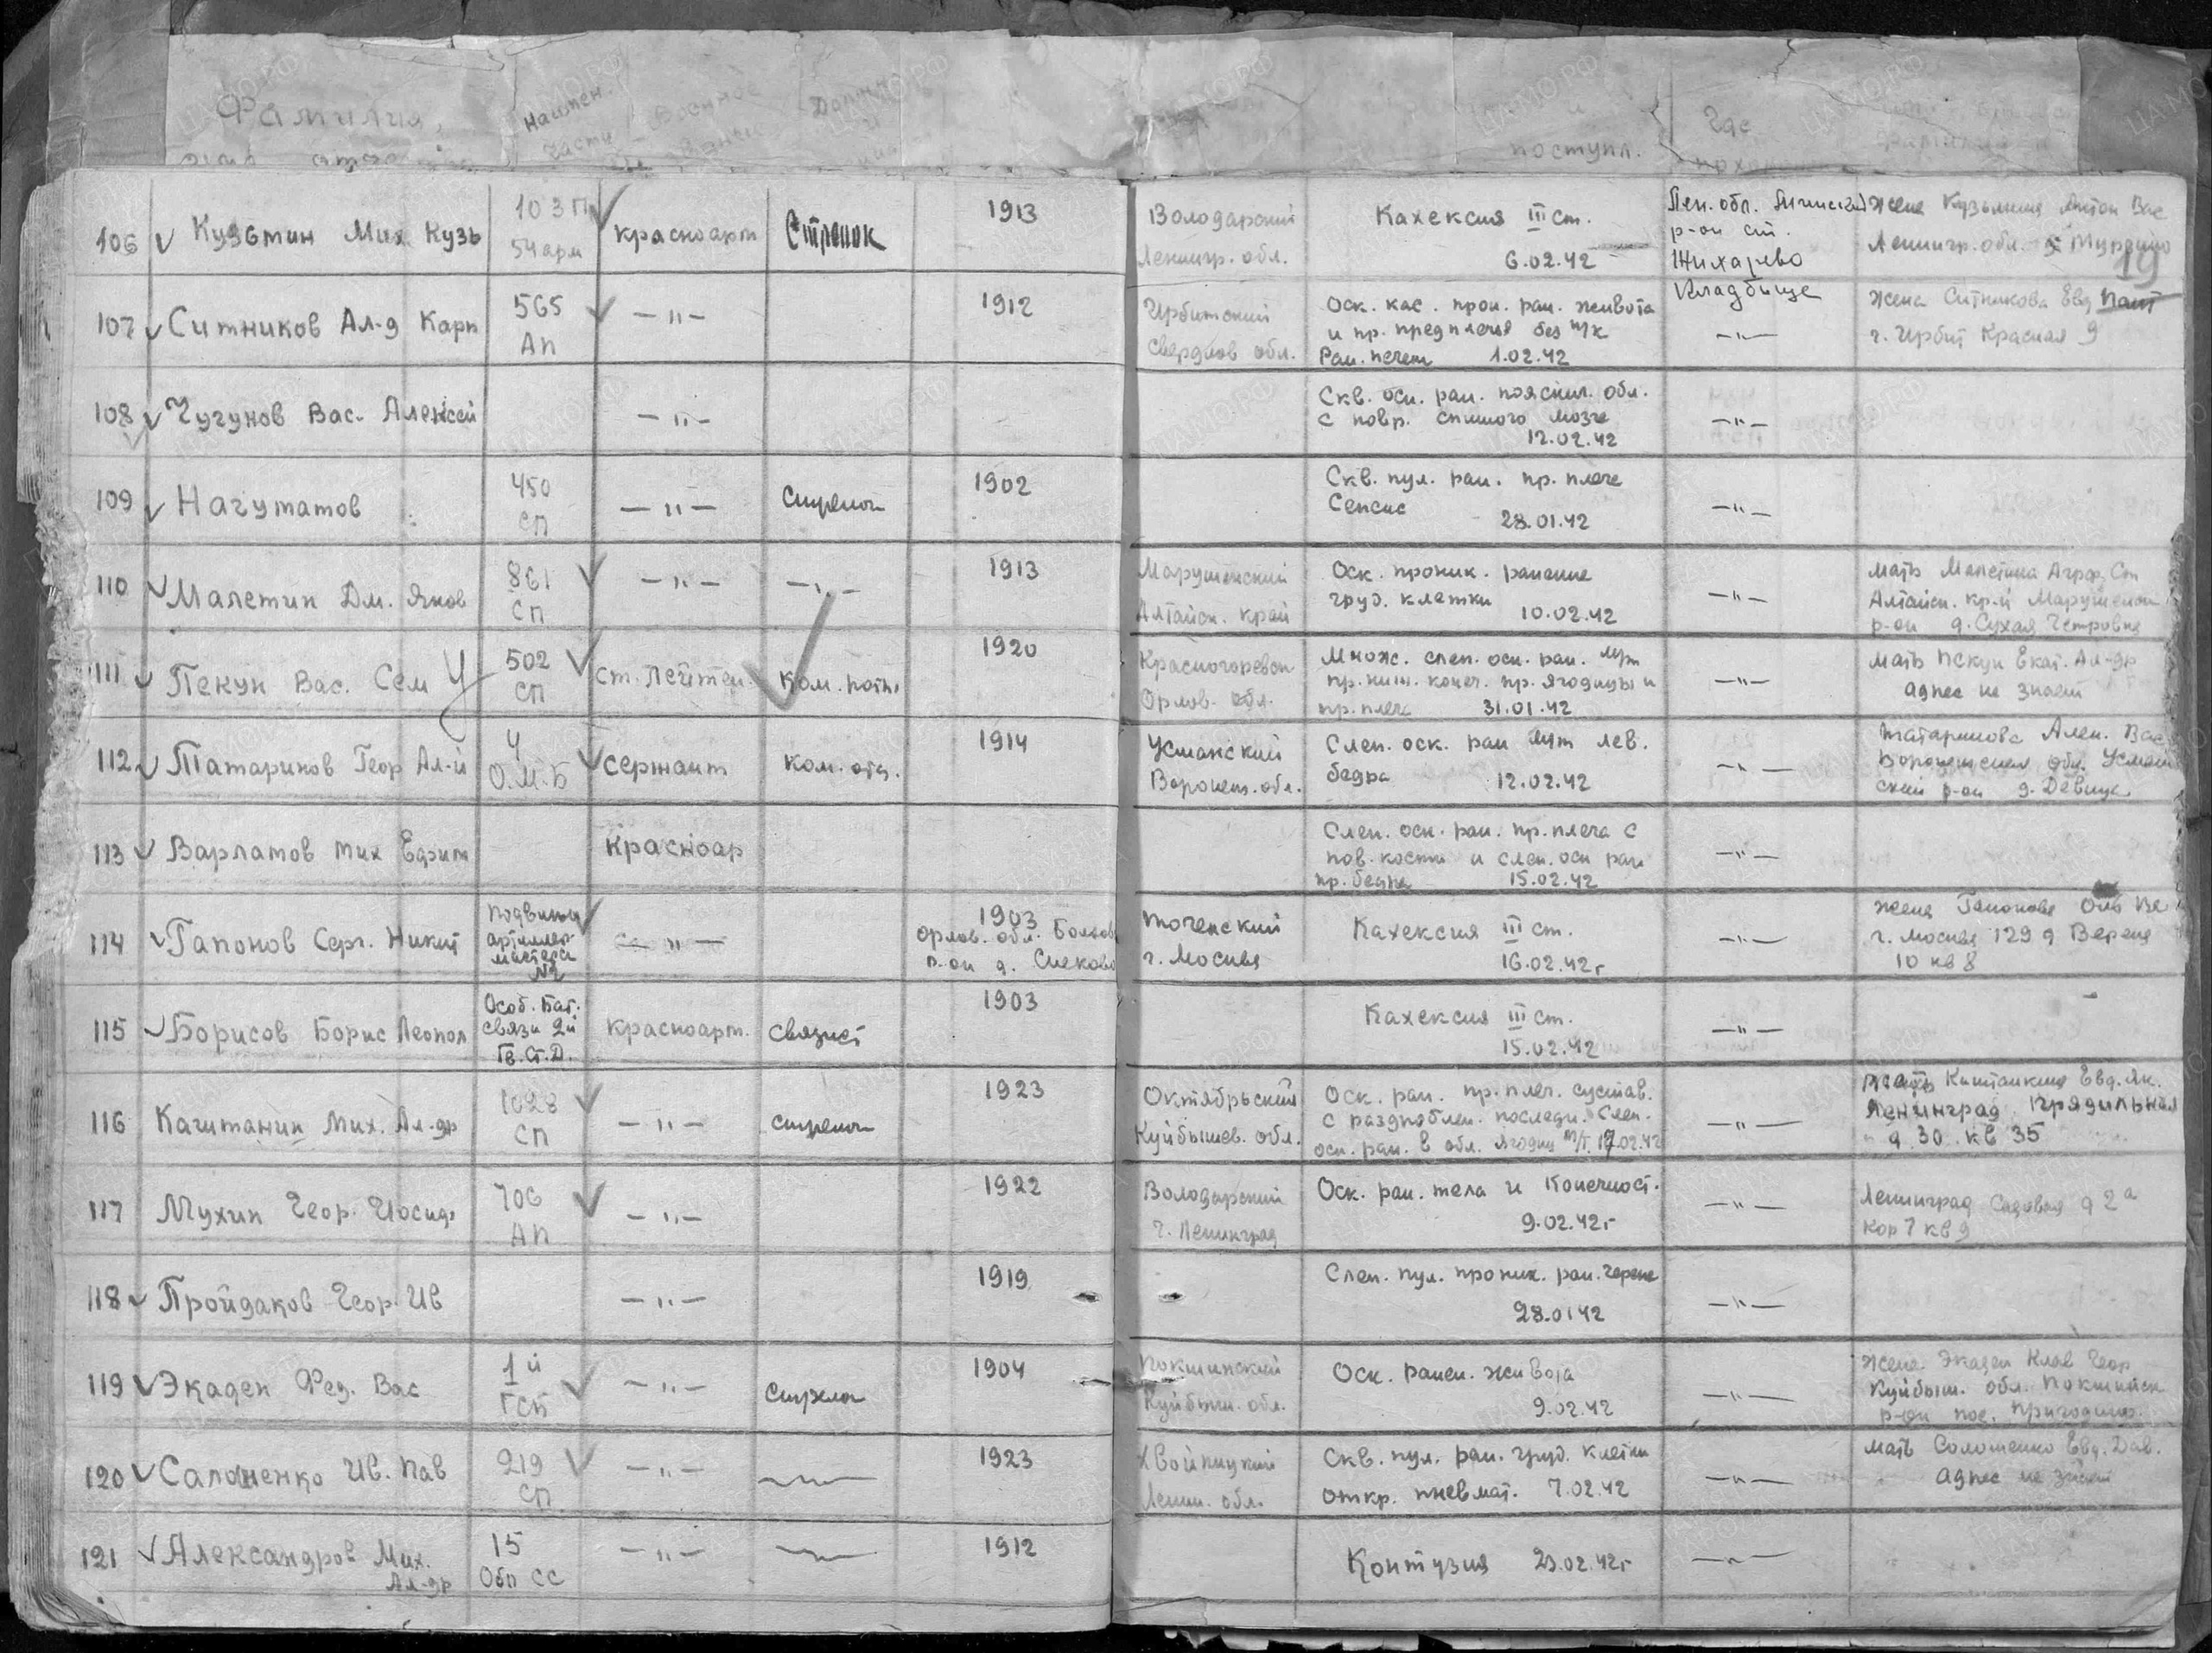 Фамилия,
Наимен.
части
Военное
поступл.
Где
106 Кузьмин Мих Кузь
103 П
54 арм
красноарм
Стрелок
1913
Володарский
Ленингр. обл.
Кахексия III ст.
6.02.42
Лен. обл.
р-он ст.
Жихарево
Кладбище
Жена Кузьмина Вас
Ленингр. обл.
19
107 Ситников Ал-д Карп
565
АП
— " —
1912
Ирбитский
Свердлов обл.
Оск. кас. прон. ран. живота
и пр. предплечья без п/к
Ран. печен 1.02.42
— " —
Жена Ситникова Евд Пант
г. Ирбит Красная 9
108 Чугунов Вас. Алексей
— " —
Скв. оск. ран. пояснич. обл.
с повр. спинного мозга
12.02.42
— " —
109 Нагуматов
450
СП
— " —
Стрелок
1902
Скв. пул. ран. пр. плеча
Сепсис
28.01.42
— " —
110 Малетин Дм. Яков
861
СП
— " —
— " —
1913
Марушенский
Алтайск. край
Оск. проник. ранение
груд. клетки
10.02.42
— " —
Мать Малетина Аграф. Ст
Алтайск. кр-й Марушенск
р-он д. Сухая Чемровка
111 Пекун Вас. Сем
502
СП
Ст. Лейтен.
Ком. роты
1920
Красногоревск
Орлов. обл.
Множ. слеп. оск. ран. м/т
пр. ниж. конеч. пр. ягодицы и
пр. плеча 31.01.42
— " —
Мать Пекун Екат. Ал-др
адрес не знает
112 Татаринов Геор Ал-й
4
О.М.Б
сержант
ком. отд.
1914
Усманский
Воронеж. обл.
Слеп. оск. ран м/т лев.
бедра 12.02.42
— " —
Татаринова Алек. Вас
Воронежская обл. Усман
ский р-он д. Девица
113 Варламов Мих Ефим
Красноар
Слеп. оск. ран. пр. плеча с
пов. кости и слеп. оск ран
пр. бедра 15.02.42
— " —
114 Гапонов Серг. Никит
Подвижн
артиллер
мастерск
№2
— " —
1903
Орлов. обл. Болхов
р-он д.
г. Москва
Кахексия III ст.
16.02.42г
— " —
Жена Гапонова
г. Москва 129 д
10 кв 8
115 Борисов Борис Леопол
Особ. Бат.
связи 2й
Гв. Ст. Д.
Красноарм.
связист
1903
Кахексия III ст.
15.02.42
— " —
116 Каштанкин Мих. Ал-др
1028
СП
— " —
стрелок
1923
Октябрьский
Куйбышев. обл.
Оск. ран. пр. плеч. сустав.
с раздроблен. последн. Слеп.
оск. ран. в обл. ягодиц м/т. 17.02.42
— " —
Мать Каштанкина Евд. Як.
Ленинград Прядильная
д. 30. кв 35
117 Мухин Геор. Иосиф
706
АП
— " —
1922
Володарский
г. Ленинград
Оск. ран. тела и конечност.
9.02.42г
— " —
Ленинград Садовая д 2а
кор 7 кв 9
118 Пройдаков Геор. Ив
— " —
1919
Слеп. пул. проник. ран. череп
28.01 42
— " —
119 Экаден Фед. Вас
1й
ГСБ
— " —
стрелок
1904
Куйбыш. обл.
Оск. ранен. живота
9.02.42
— " —
Жена Экаден Клав Геор
Куйбыш. обл.
р-он пос.
120 Солоненко Ив. Пав
219
СП
— " —
1923
Хвойнуский
Ленин. обл.
Скв. пул. ран. груд. клетки
откр. пневмат. 7.02.42
— " —
мать Солошенко Евд. Дав.
адрес не знает
121 Александров Мих.
Ал-др
15
Обп СС
— " —
1912
Контузия 23.02.42г
— " —